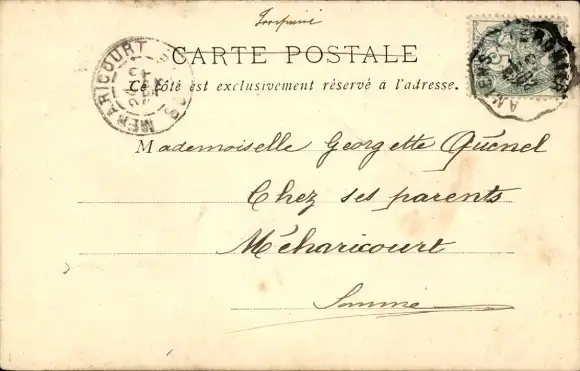 Imprimé
CARTE POSTALE
Ce côté est exclusivement réservé à l'adresse.
MÉHARICOURT
Mademoiselle Georgette Quénel
Chez ses parents
Méharicourt
Somme